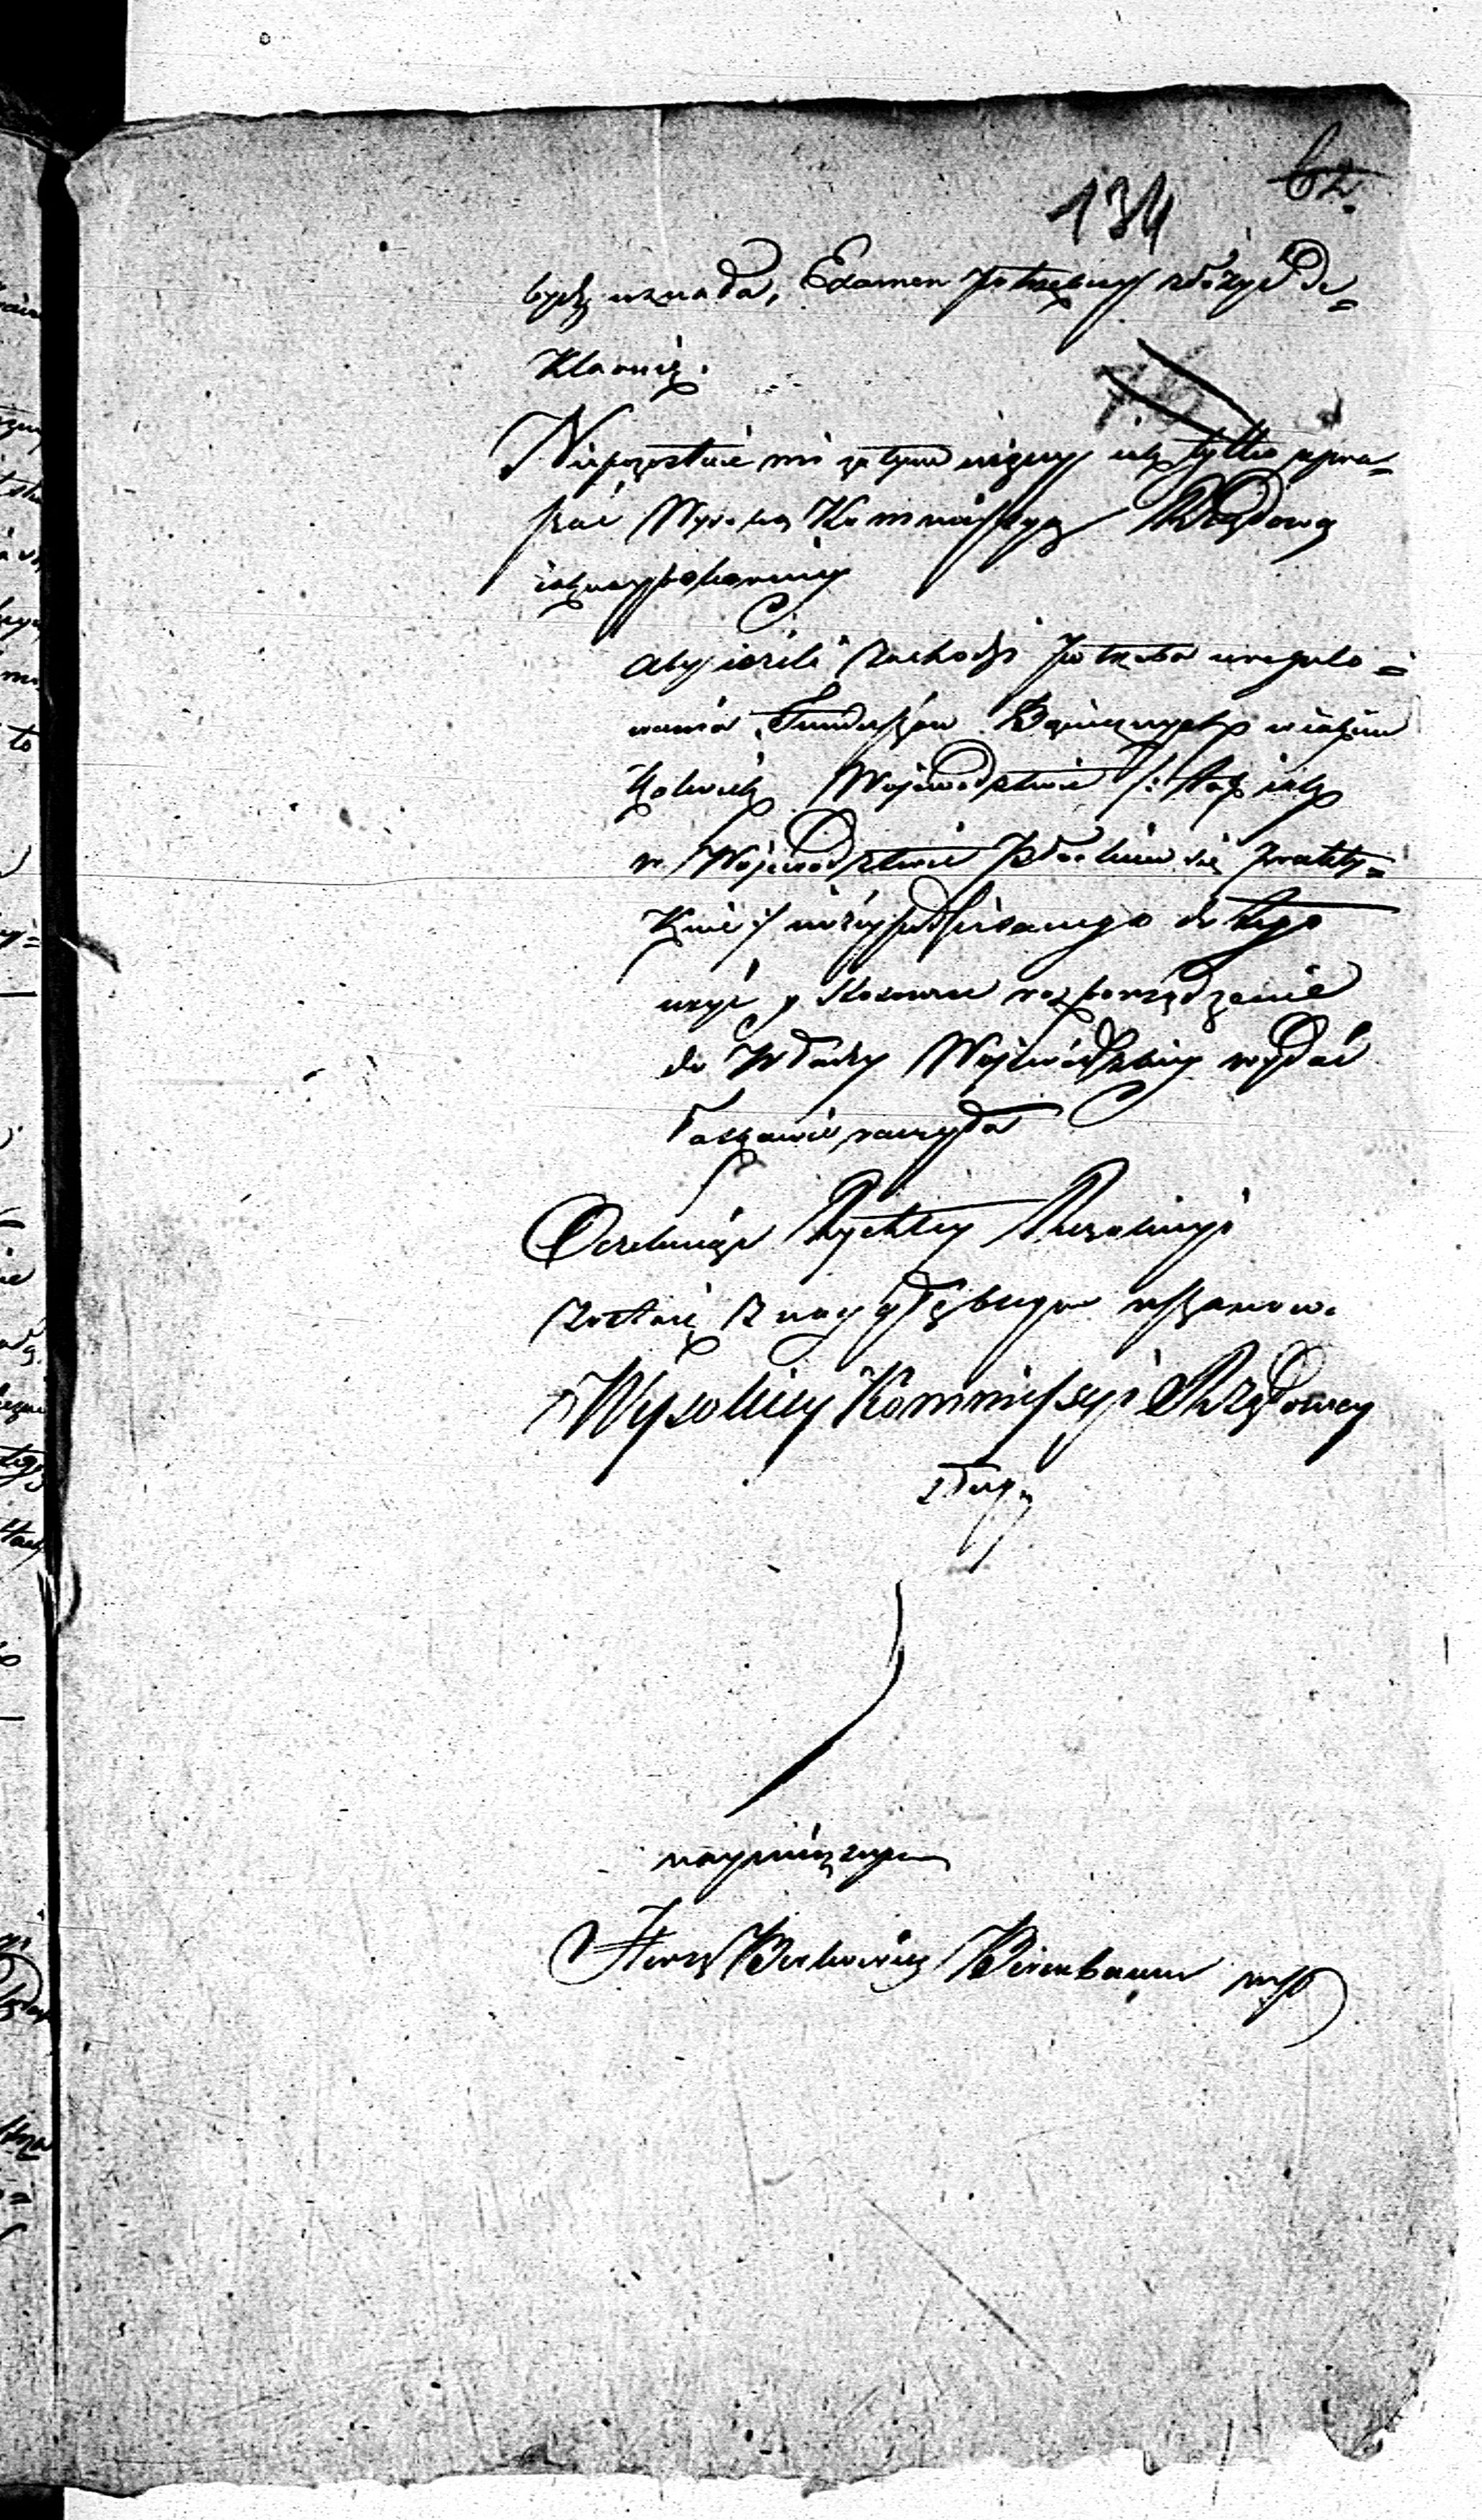 134 62.
bydź uznada, Examen potrzebny złożyć de=
klaruię.
Niepozostaie mi zatym więcey iak tylko upra=
szać Wysoką Kommissyą Rządową
iaknaypokorniey
aby ieżeli zachodzi potrzeba uregulo=
wania Funduszów Bożniczych w iakim
kolwiek Wojewodztwie /: tak iak
w Wojewodztwie Płockim się prakty=
kuie :/ niżey podpisanego do tego
użyć y stosowne rozporządzenie
do Władzy Wojewódzkiey wydać
łaskawie raczyła
Oczekuiąc Rychłey Rezolucyi
zostaię z naygłębszym uszanow.
Wysokiey Kommissyi Rządowey
sługą
nayniższym
Herz Berkowicz Birenbaum mp